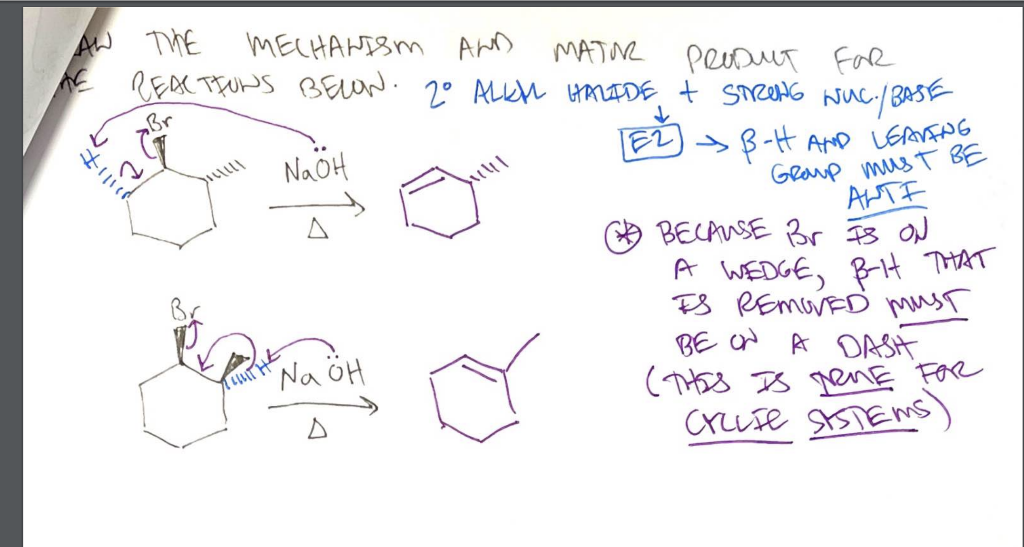 AW THE MECHANISM AND MAJOR PRODUCT FOR
HE REACTIONS BELOW. 2° ALKYL HALIDE + STRONG NUC./BASE
E2 → β-H AND LEAVING
GROUP MUST BE
ANTI
Br
H
NaÖH
Δ
* BECAUSE Br IS ON
A WEDGE, β-H THAT
IS REMOVED MUST
BE ON A DASH
(THIS IS TRUE FOR
CYCLIC SYSTEMS)
Br
H
NaÖH
Δ